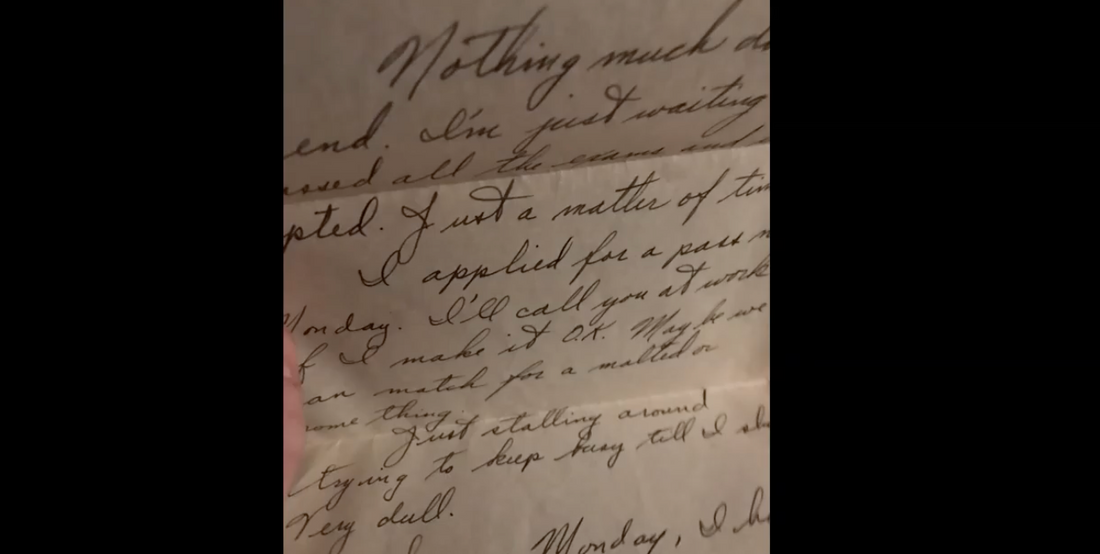 Nothing much d
end. I'm just waiting
ssed all the exams and
pted. Just a matter of tim
I applied for a pass n
Monday. I'll call you at work
f I make it O.K. May be we
an match for a malted or
some thing.
Just stalling around
trying to keep busy till I sh
Very dull.
Monday, I h